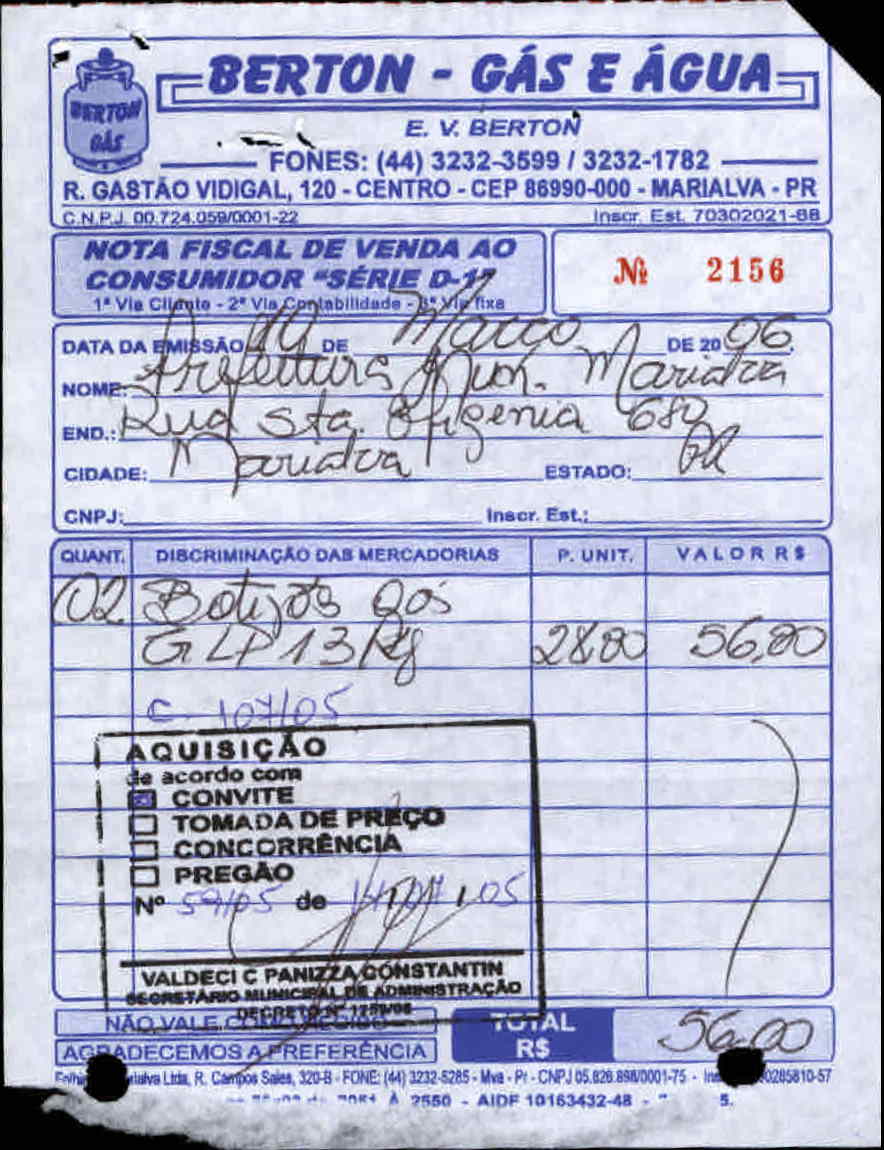 BERTON - GÁS E ÁGUA
BERTON
GÁS
E. V. BERTON
FONES: (44) 3232-3599 / 3232-1782
R. GASTÃO VIDIGAL, 120 - CENTRO - CEP 86990-000 - MARIALVA - PR
C.N.P.J. 00.724.059/0001-22 Inscr. Est. 70302021-68
NOTA FISCAL DE VENDA AO
CONSUMIDOR "SÉRIE D-1"
1ª Via Cliente - 2ª Via Contabilidade - 3ª Via fixa
Nº 2156
DATA DA EMISSÃO DE Março DE 2006
NOME: Prefeitura Mun. Marialva
END.: Rua Sta. Efigenia 680
CIDADE: Marialva ESTADO: PR
CNPJ: Inscr. Est.:
QUANT. DISCRIMINAÇÃO DAS MERCADORIAS P. UNIT. VALOR R$
02 Botijões Gás
GLP 13 Kg 28,00 56,00
C. 107/05
AQUISIÇÃO
de acordo com
CONVITE
TOMADA DE PREÇO
CONCORRÊNCIA
PREGÃO
Nº 59/05 de 05
VALDECI C PANIZZA CONSTANTIN
SECRETÁRIO MUNICIPAL DE ADMINISTRAÇÃO
DECRETO Nº
NÃO VALE COMO RECIBO
AGRADECEMOS A PREFERÊNCIA
TOTAL
R$
56,00
Ltda, R. Campos Sales, 320-B - FONE: (44) 3232-5285 - Mva - Pr - CNPJ 05.826.898/0001-75 - 90285810-57
2550 - AIDF 10163432-48 -